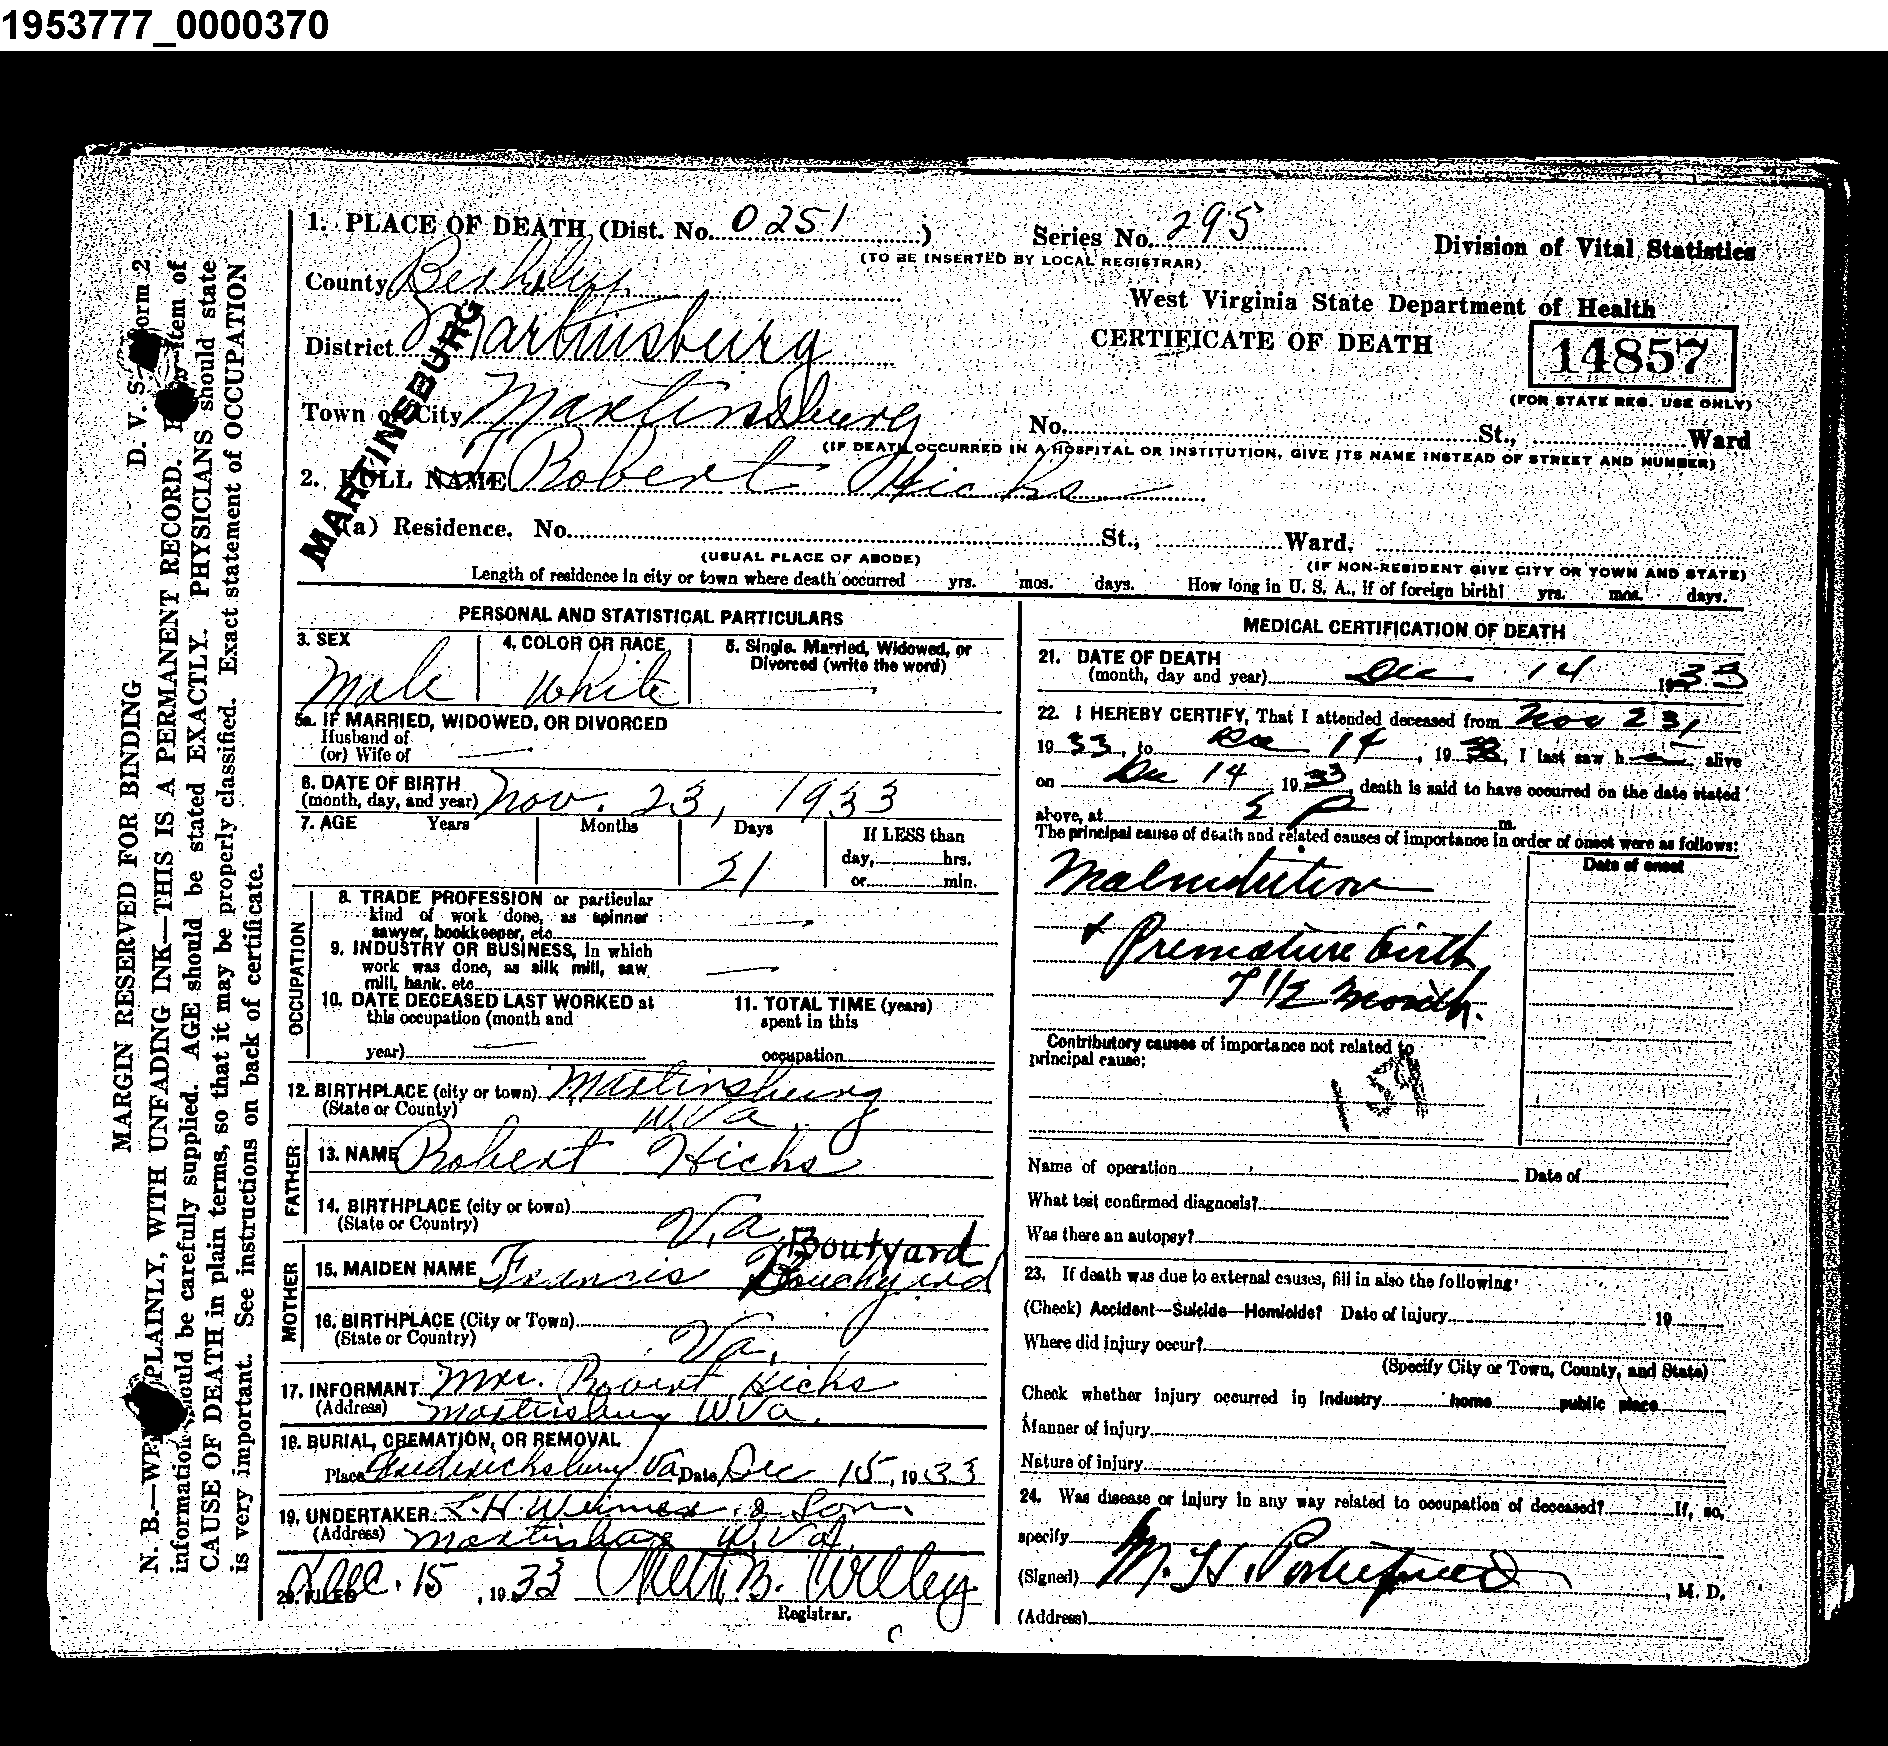 1953777_0000370
1. PLACE OF DEATH (Dist. No. 0251 )
Series No. 295
(TO BE INSERTED BY LOCAL REGISTRAR)
Division of Vital Statistics
County Berkeley
West Virginia State Department of Health
District Martinsburg
CERTIFICATE OF DEATH
14857
(FOR STATE REG. USE ONLY)
MARTINSBURG
Town or City Martinsburg
No. St., Ward
(IF DEATH OCCURRED IN A HOSPITAL OR INSTITUTION, GIVE ITS NAME INSTEAD OF STREET AND NUMBER)
2. FULL NAME Robert Hicks
(a) Residence. No. St., Ward.
(USUAL PLACE OF ABODE)
(IF NON-RESIDENT GIVE CITY OR TOWN AND STATE)
Length of residence in city or town where death occurred yrs. mos. days. How long in U. S. A., if of foreign birth? yrs. mos. days.
D. V. S. Form 2
MARGIN RESERVED FOR BINDING
N. B.—WRITE PLAINLY, WITH UNFADING INK—THIS IS A PERMANENT RECORD. Every item of
information should be carefully supplied. AGE should be stated EXACTLY. PHYSICIANS should state
CAUSE OF DEATH in plain terms, so that it may be properly classified. Exact statement of OCCUPATION
is very important. See instructions on back of certificate.
PERSONAL AND STATISTICAL PARTICULARS
3. SEX
Male
4. COLOR OR RACE
White
5. Single, Married, Widowed, or
Divorced (write the word)
5a. IF MARRIED, WIDOWED, OR DIVORCED
Husband of
(or) Wife of
6. DATE OF BIRTH
(month, day, and year) Nov. 23, 1933
7. AGE Years Months Days If LESS than
21
day, hrs.
or min.
OCCUPATION
8. TRADE PROFESSION or particular
kind of work done, as spinner
sawyer, bookkeeper, etc.
9. INDUSTRY OR BUSINESS, in which
work was done, as silk mill, saw
mill, bank, etc.
10. DATE DECEASED LAST WORKED at
this occupation (month and
year)
11. TOTAL TIME (years)
spent in this
occupation
12. BIRTHPLACE (city or town) Martinsburg
(State or County) W.Va.
FATHER
13. NAME Robert Hicks
14. BIRTHPLACE (city or town)
(State or Country) Va.
MOTHER
Boutyard
15. MAIDEN NAME Francis
16. BIRTHPLACE (City or Town)
(State or Country) Va.
17. INFORMANT Mrs. Robert Hicks
(Address) Martinsburg W Va.
18. BURIAL, CREMATION, OR REMOVAL
Place Fredericksburg Va Date Dec 15, 1933
19. UNDERTAKER & Son.
(Address) Martinsburg W.Va.
20. FILED Dec. 15, 1933
Registrar.
MEDICAL CERTIFICATION OF DEATH
21. DATE OF DEATH
(month, day and year) Dec 14 1933
22. I HEREBY CERTIFY, That I attended deceased from Nov 23,
1933, to Dec 14, 1933, I last saw h alive
on Dec 14 1933, death is said to have occurred on the date stated
above, at 5 P m.
The principal cause of death and related causes of importance in order of onset were as follows:
Date of onset
Malnutrition
+ Premature birth
7 1/2 month.
Contributory causes of importance not related to
principal cause:
159
Name of operation Date of
What test confirmed diagnosis?
Was there an autopsy?
23. If death was due to external causes, fill in also the following:
(Check) Accident—Suicide—Homicide? Date of injury 19
Where did injury occur?
(Specify City or Town, County, and State)
Check whether injury occurred in industry home public place
Manner of injury
Nature of injury
24. Was disease or injury in any way related to occupation of deceased? If, so,
specify
(Signed) M. H. Porterfield, M. D.
(Address)